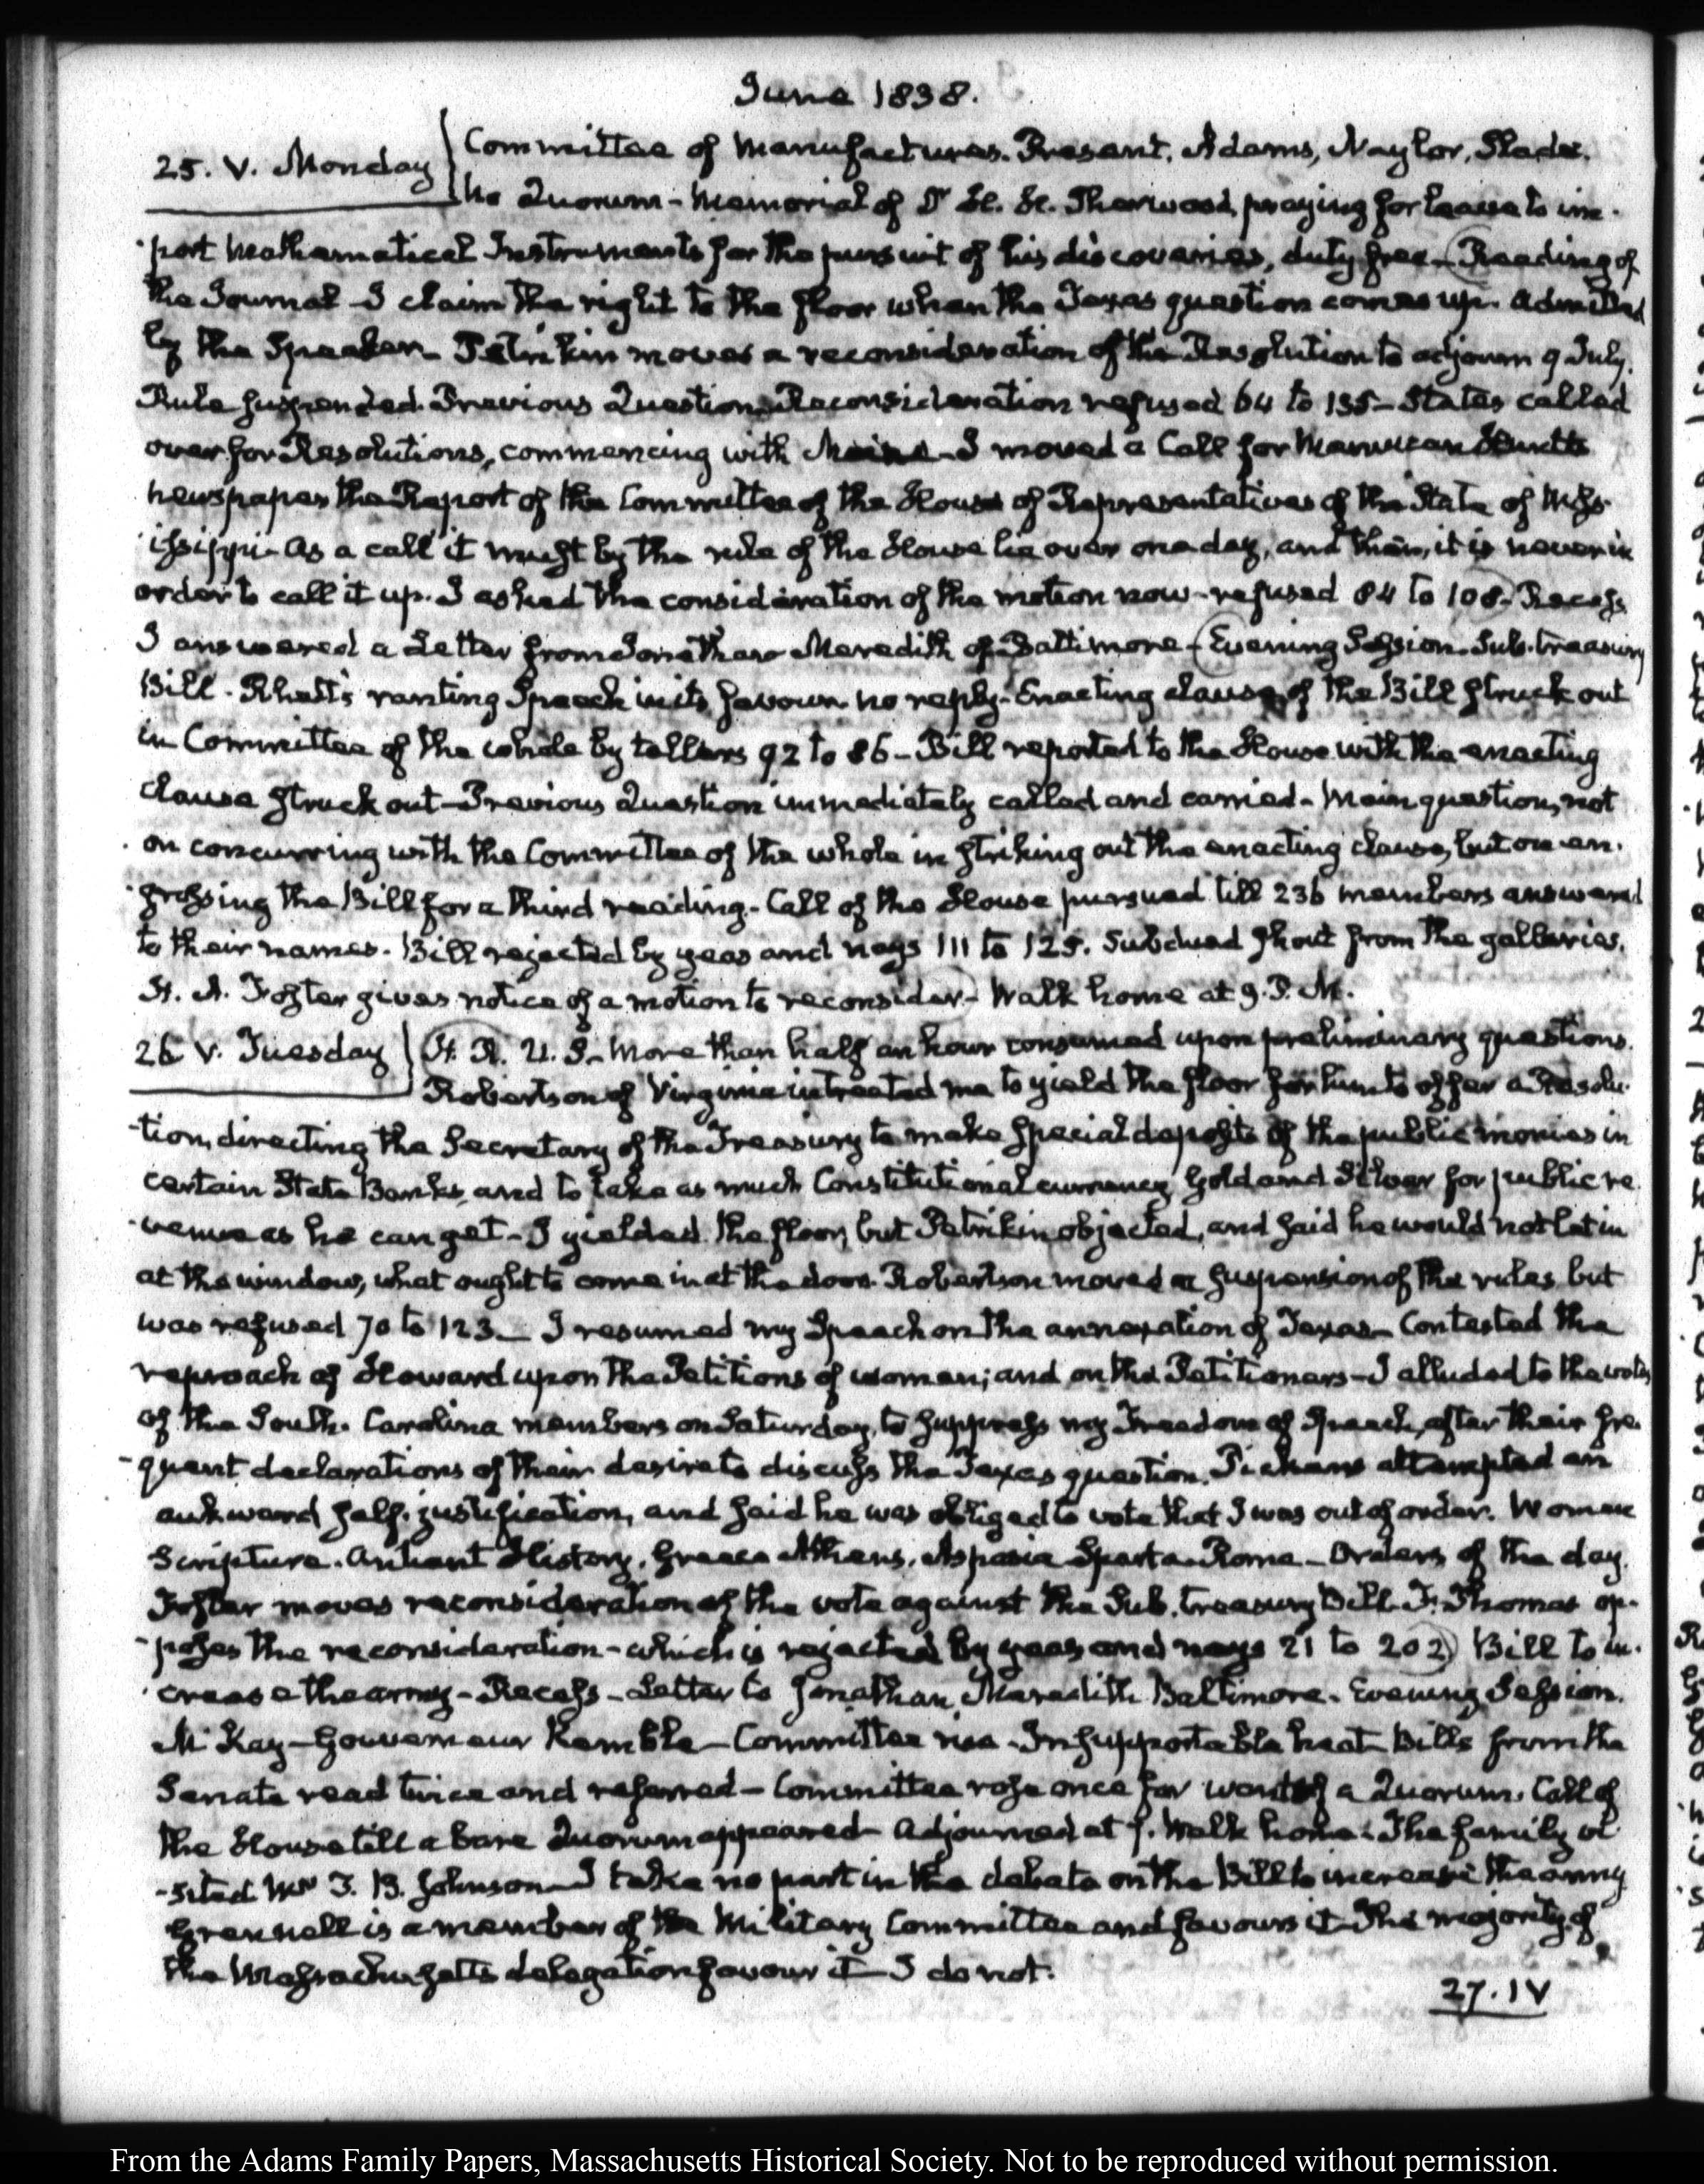 June 1838.
25. V. Monday
Committee of Manufactures. Present, Adams, Naylor, Slade.
No Quorum - Memorial of Dr H. H. Sherwood, praying for leave to im-
-port Mathematical Instruments for the pursuit of his discoveries, duty free - Reading of
the Journal - I claim the right to the floor when the Texas question comes up. Admitted
by the Speaker - Petrikin moves a reconsideration of the Resolution to adjourn 9 July.
Rule suspended. Previous Question. Reconsideration refused 64 to 135 - States called
over for Resolutions, commencing with Maine - I moved a Call for
newspaper the Report of the Committee of the House of Representatives of the State of Miss-
-issippi - As a call it must by the rule of the House lie over one day, and then, it is never in
order to call it up. I asked the consideration of the motion now - refused 84 to 108 - Recess
I answered a Letter from Jonathan Meredith of Baltimore - Evening Session. Sub. treasury
Bill - Rhett's ranting Speech in its favour. no reply - Enacting clause of the Bill struck out
in Committee of the whole by tellers 92 to 86 - Bill reported to the House with the enacting
clause struck out - Previous Question immediately called and carried - Main question, not
on concurring with the Committee of the whole in striking out the enacting clause, but on en-
-grossing the Bill for a third reading - Call of the House pursued till 236 members answered
to their names. Bill rejected by yeas and nays 111 to 125. Subdued shout from the galleries.
H. A. Foster gives notice of a motion to reconsider - Walk home at 9. P. M.
26 V. Tuesday
H. R. U. S. - More than half an hour consumed upon preliminary questions.
Robertson of Virginia intreated me to yield the floor for him to offer a Resolu-
-tion, directing the Secretary of the Treasury to make special deposits of the public monies in
certain State Banks, and to take as much Constitutional currency Gold and Silver for public re-
-venue as he can get - I yielded the floor, but Petrikin objected, and said he would not let in
at the window, what ought to come in at the door. Robertson moved a suspension of the rules but
was refused 70 to 123 - I resumed my Speech on the annexation of Texas - Contested the
reproach of Howard upon the Petitions of women; and on the Petitioners - I alluded to the votes
of the South. Carolina members on Saturday, to suppress my Freedom of Speech, after their fre-
-quent declarations of their desire to discuss the Texas question. Pickens attempted an
aukward half. justification, and said he was obliged to vote that I was out of order. Women
Scripture. Antient History. Greece Athens. Aspasia Sparta - Rome - Orders of the day.
Foster moves reconsideration of the vote against the Sub. treasury Bill. F. Thomas op-
-poses the reconsideration - which is rejected by yeas and nays 21 to 202 Bill to in-
-crease the army - Recess - Letter to Jonathan Meredith Baltimore - Evening Session.
McKay - Gouverneur Kemble - Committee rise - Insupportable heat - Bills from the
Senate read twice and referred - Committee rose once for want of a Quorum. Call of
the House till a bare Quorum appeared - Adjourned at 9. Walk home. The family vi-
-sited Mrs T. B. Johnson - I take no part in the debate on the Bill to increase the army
Grennell is a member of the Military Committee and favours it - The majority of
the Massachusetts delegation favour it - I do not.
27. IV
From the Adams Family Papers, Massachusetts Historical Society. Not to be reproduced without permission.